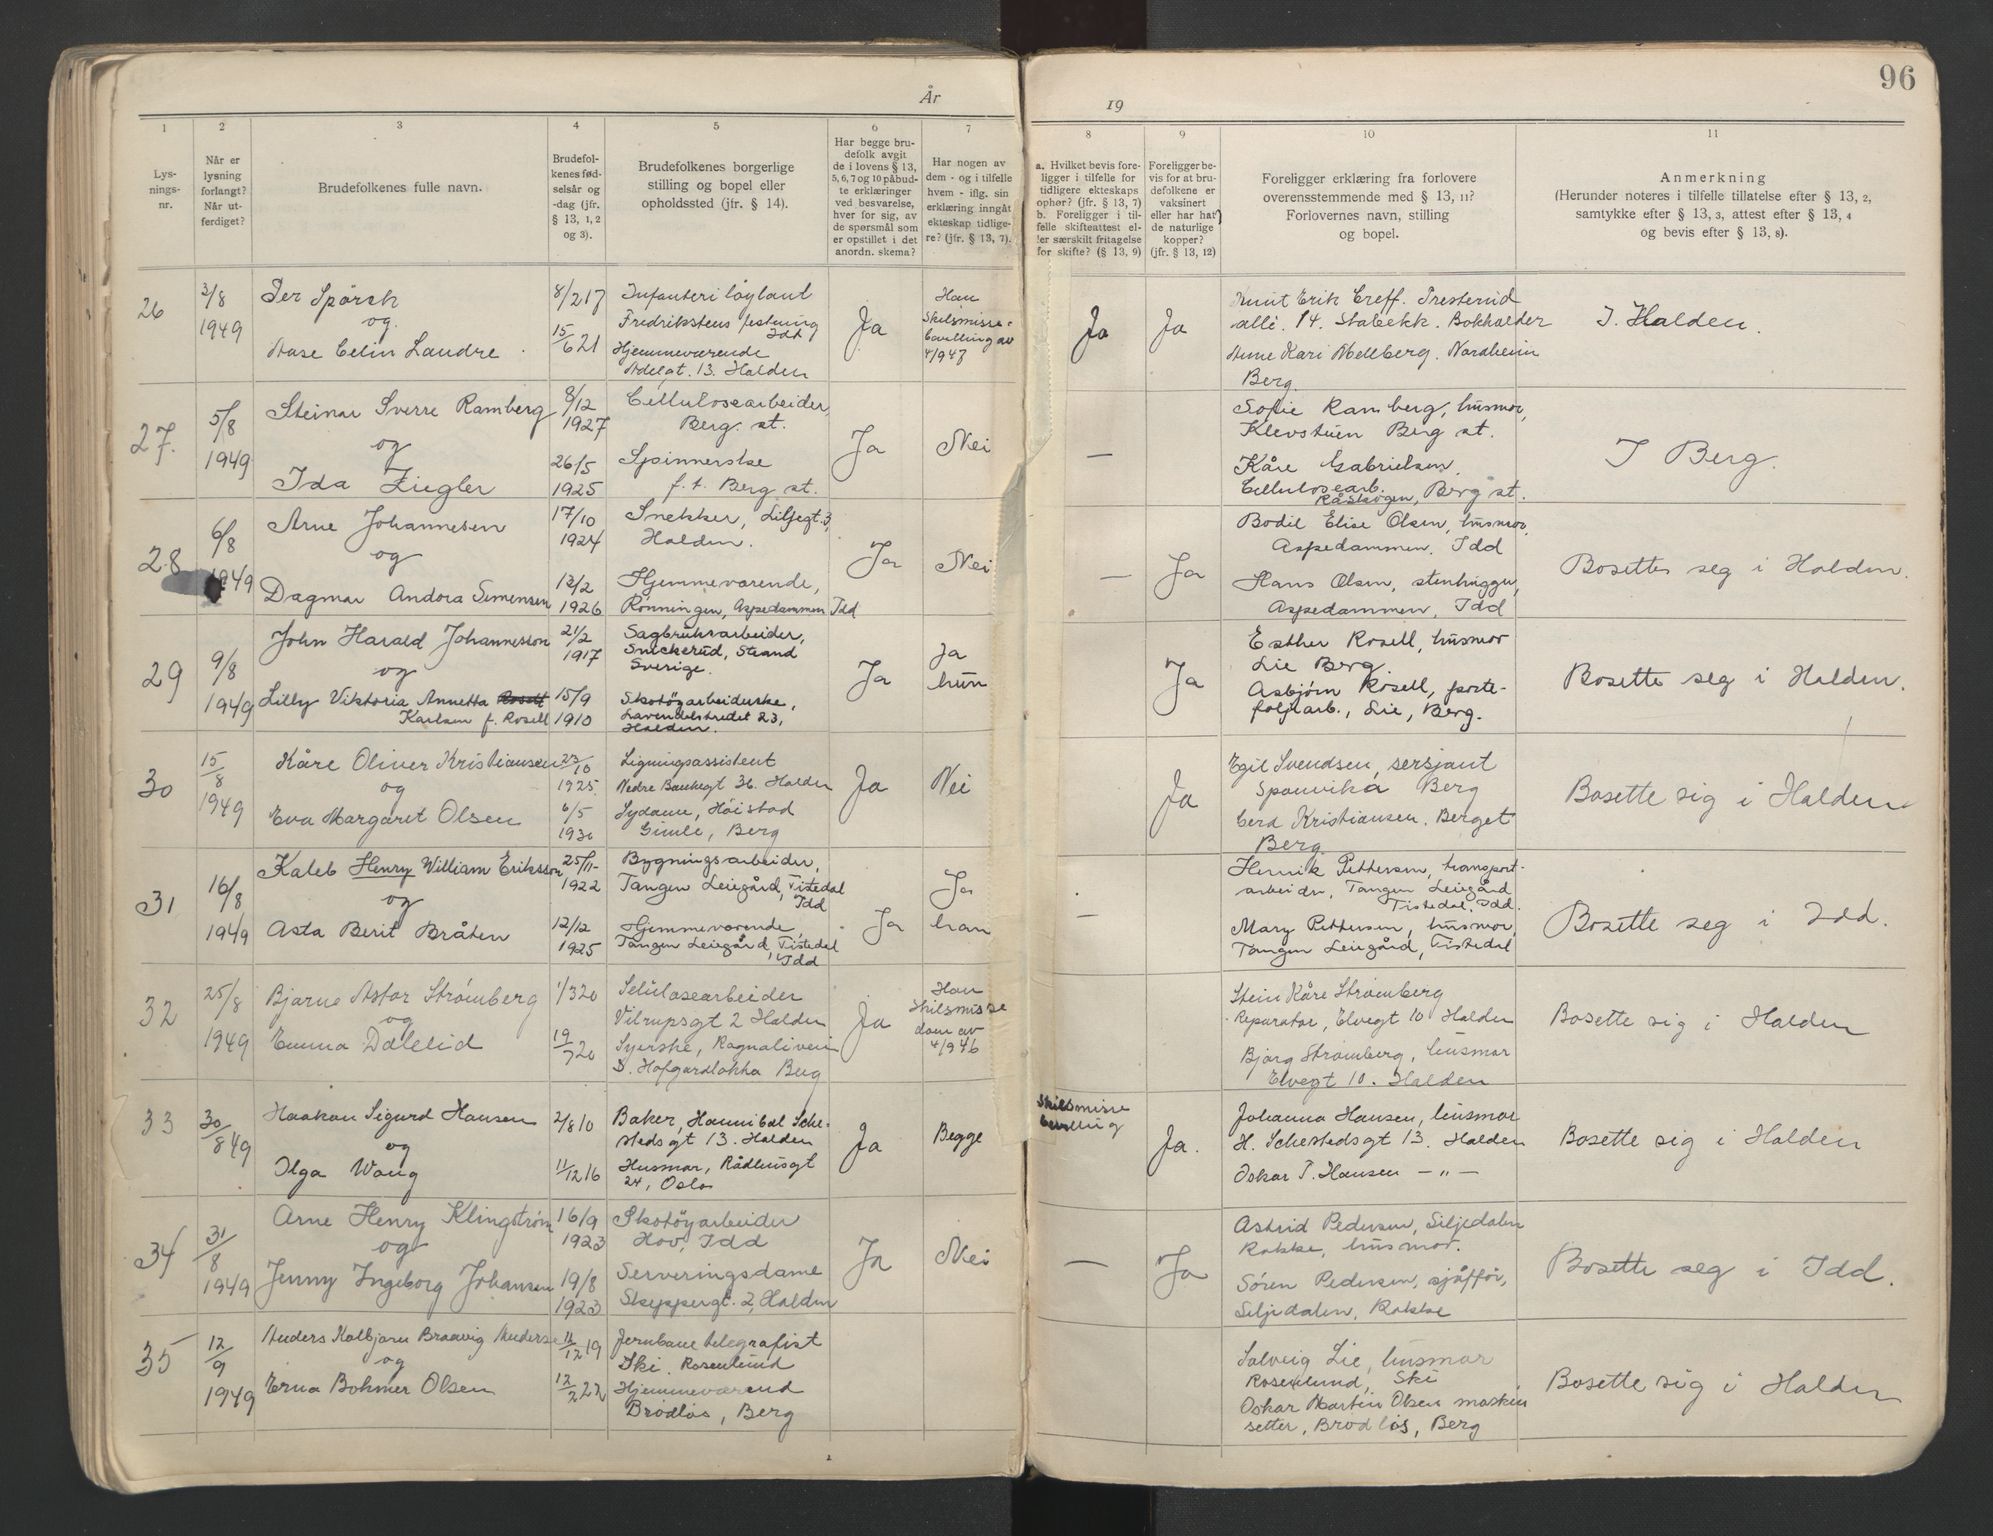 96
År
19
1
2
3
4
5
6
7
8
9
10
11
Lys-
nings-
nr.
Når er
lysning
forlangt?
Når ut-
ferdiget?
Brudefolkenes fulle navn.
Brudefol-
kenes fød-
selsår og
-dag (jfr.
§ 13, 1, 2
og 3).
Brudefolkenes borgerlige
stilling og bopel eller
opholdssted (jfr. § 14).
Har begge bru-
defolk avgit
de i lovens § 13,
5, 6, 7 og 10 påbud-
te erklæringer
ved besvarelse,
hver for sig, av
de spørsmål som
er opstillet i det
anordn. skema?
Har nogen av
dem - og i tilfelle
hvem - iflg. sin
erklæring inngått
ekteskap tidlige-
re? (jfr. § 13, 7).
a. Hvilket bevis fore-
ligger i tilfelle for
tidligere ekteskaps
ophør? (jfr. § 13, 7)
b. Foreligger i til-
felle skifteattest el-
ler særskilt fritagelse
for skifte? (§ 13, 9)
Foreligger be-
vis for at bru-
defolkene er
vaksinert
eller har hatt
de naturlige
kopper?
(jfr. § 13, 12)
Foreligger erklæring fra forlovere
overensstemmende med § 13, 11?
Forlovernes navn, stilling
og bopel.
Anmerkning
(Herunder noteres i tilfelle tillatelse efter § 13, 2,
samtykke efter § 13, 3, attest efter § 13, 4
og bevis efter § 13, 8).
26
3/8
1949
Per Spörck
og
Aase Celin Landre
8/2 17
15/6 21
Infanteri løytnant
Fredrikstens festning
Idd
Hjemmeværende
Adelgt. 13. Halden
Ja
Han
Skilsmisse-
bevilling av
4/9 47
Ja
Ja
Knut Erik Creff. Presterud
allé. 14. Stabekk. Bokholder
Anne Kari Mellberg. Nordheim
Berg.
I. Halden.
27.
5/8
1949
Steinar Sverre Ramberg
og
Ida Ziegler
8/12
1927
26/5
1925
Cellulosearbeider,
Berg st.
Spinnerske
f. t. Berg st.
Ja
Nei
—
Sofie Ramberg, husmor,
Klevstuen Berg st.
Kåre Gabrielsen,
Cellulosearb.
Råskogen, Berg st.
I Berg.
28
6/8
1949
Arne Johannesen
og
Dagmar Andora Simensen
17/10
1924
12/2
1926
Snekker, Liljegt. 3,
Halden.
Hjemmeværende,
Rønningen, Aspedammen Idd
Ja
Nei
—
Ja
Bodil Elise Olsen, husmor,
Aspedammen. Idd
Hans Olsen, stenhugger,
Aspedammen, Idd
Bosetter seg i Halden.
29
9/8
1949
John Harald Johannesson
og
Lilly Viktoria Annetta
Karlsen f. Rosell
21/2
1917
15/9
1910
Sagbruksarbeider,
Snickerud, Strand
Sverige.
Skotöyarbeiderske,
Lavendelstredet 23,
Halden.
Ja
Ja
hun
Ja
Esther Rosell, husmor
Lie Berg.
Asbjørn Rosell, porte-
føljearb., Lie, Berg.
Bosette seg i Halden.
30
15/8
1949
Kåre Oliver Kristiansen
og
Eva Margaret Olsen
23/10
1925.
6/5
1930
Ligningsassistent
Nedre Bankegt 36. Halden
Sydame, Höistad
Gimle, Berg
Ja
Nei
Ja
Egil Svendsen, sersjant
Sponvika Berg
Gerd Kristiansen. Berget
Berg
Bosette sig i Halden
31
16/8
1949
Kaleb Henry William Eriksson
og
Asta Berit Bråten
25/11-
1922
12/12
1925
Bygningsarbeider,
Tangen Leiegård, Tistedal
Idd
Hjemmeværende,
Tangen Leiegård, Tistedal
Idd
Ja
Ja
han
—
Henrik Pettersen, transport-
arbeider, Tangen Leiegård
Tistedal, Idd.
Mary Pettersen, husmor,
Tangen Leiegård, Tistedal
Bosette seg i Idd.
32
25/8
1949
Bjarne Astor Strømberg
og
Emma Dalelid
1/3 20
19/7 20
Selulosearbeider
Vilrupsgt 2 Halden
Syerske, Ragnaliveien
5. Hofgardløkka Berg
Ja
Han
Skilsmisse
dom av
4/9 46
Stein Kåre Strømberg
Reparatør, Elvegt 10 Halden
Bjørg Strømberg, husmor
Elvegt 10. Halden
Bosette sig i Halden
33
30/8 49
Haakon Sigurd Hansen
og
Olga Wang
2/8 10
11/12 16
Baker, Hannibal Sche-
stedsgt 13. Halden
Husmor, Rådhusgt
24, Oslo
Ja
Begge
Skilsmisse
bevilling
Ja.
Johanna Hansen, husmor
H. Schestedsgt 13. Halden
Oskar T. Hansen — „ —
Bosette sig i Halden
34
31/8
1949
Arne Henry Klingström
og
Jenny Ingeborg Johansen
16/9
1923
19/8
1923
Skotöyarbeider
Hov, Idd
Serveringsdame
Skippergt. 2, Halden
Ja
Nei
—
Ja
Astrid Pedersen, Siljedalen
Rokke, husmor.
Søren Pedersen, sjåffør,
Siljedalen, Rokke
Bosette seg i Idd.
35
12/9
1949
Anders Kolbjørn Braavig Andersen
og
Erna Bohmer Olsen
11/12 19
12/2 22
Jernbanetelegrafist
Ski. Rosenlund
Hjemmeværend
Brødløs, Berg
Solveig Lie, husmor
Rosenlund, Ski
Oskar Martin Olsen maskin
setter, Brødløs, Berg
Bosette sig i Halden